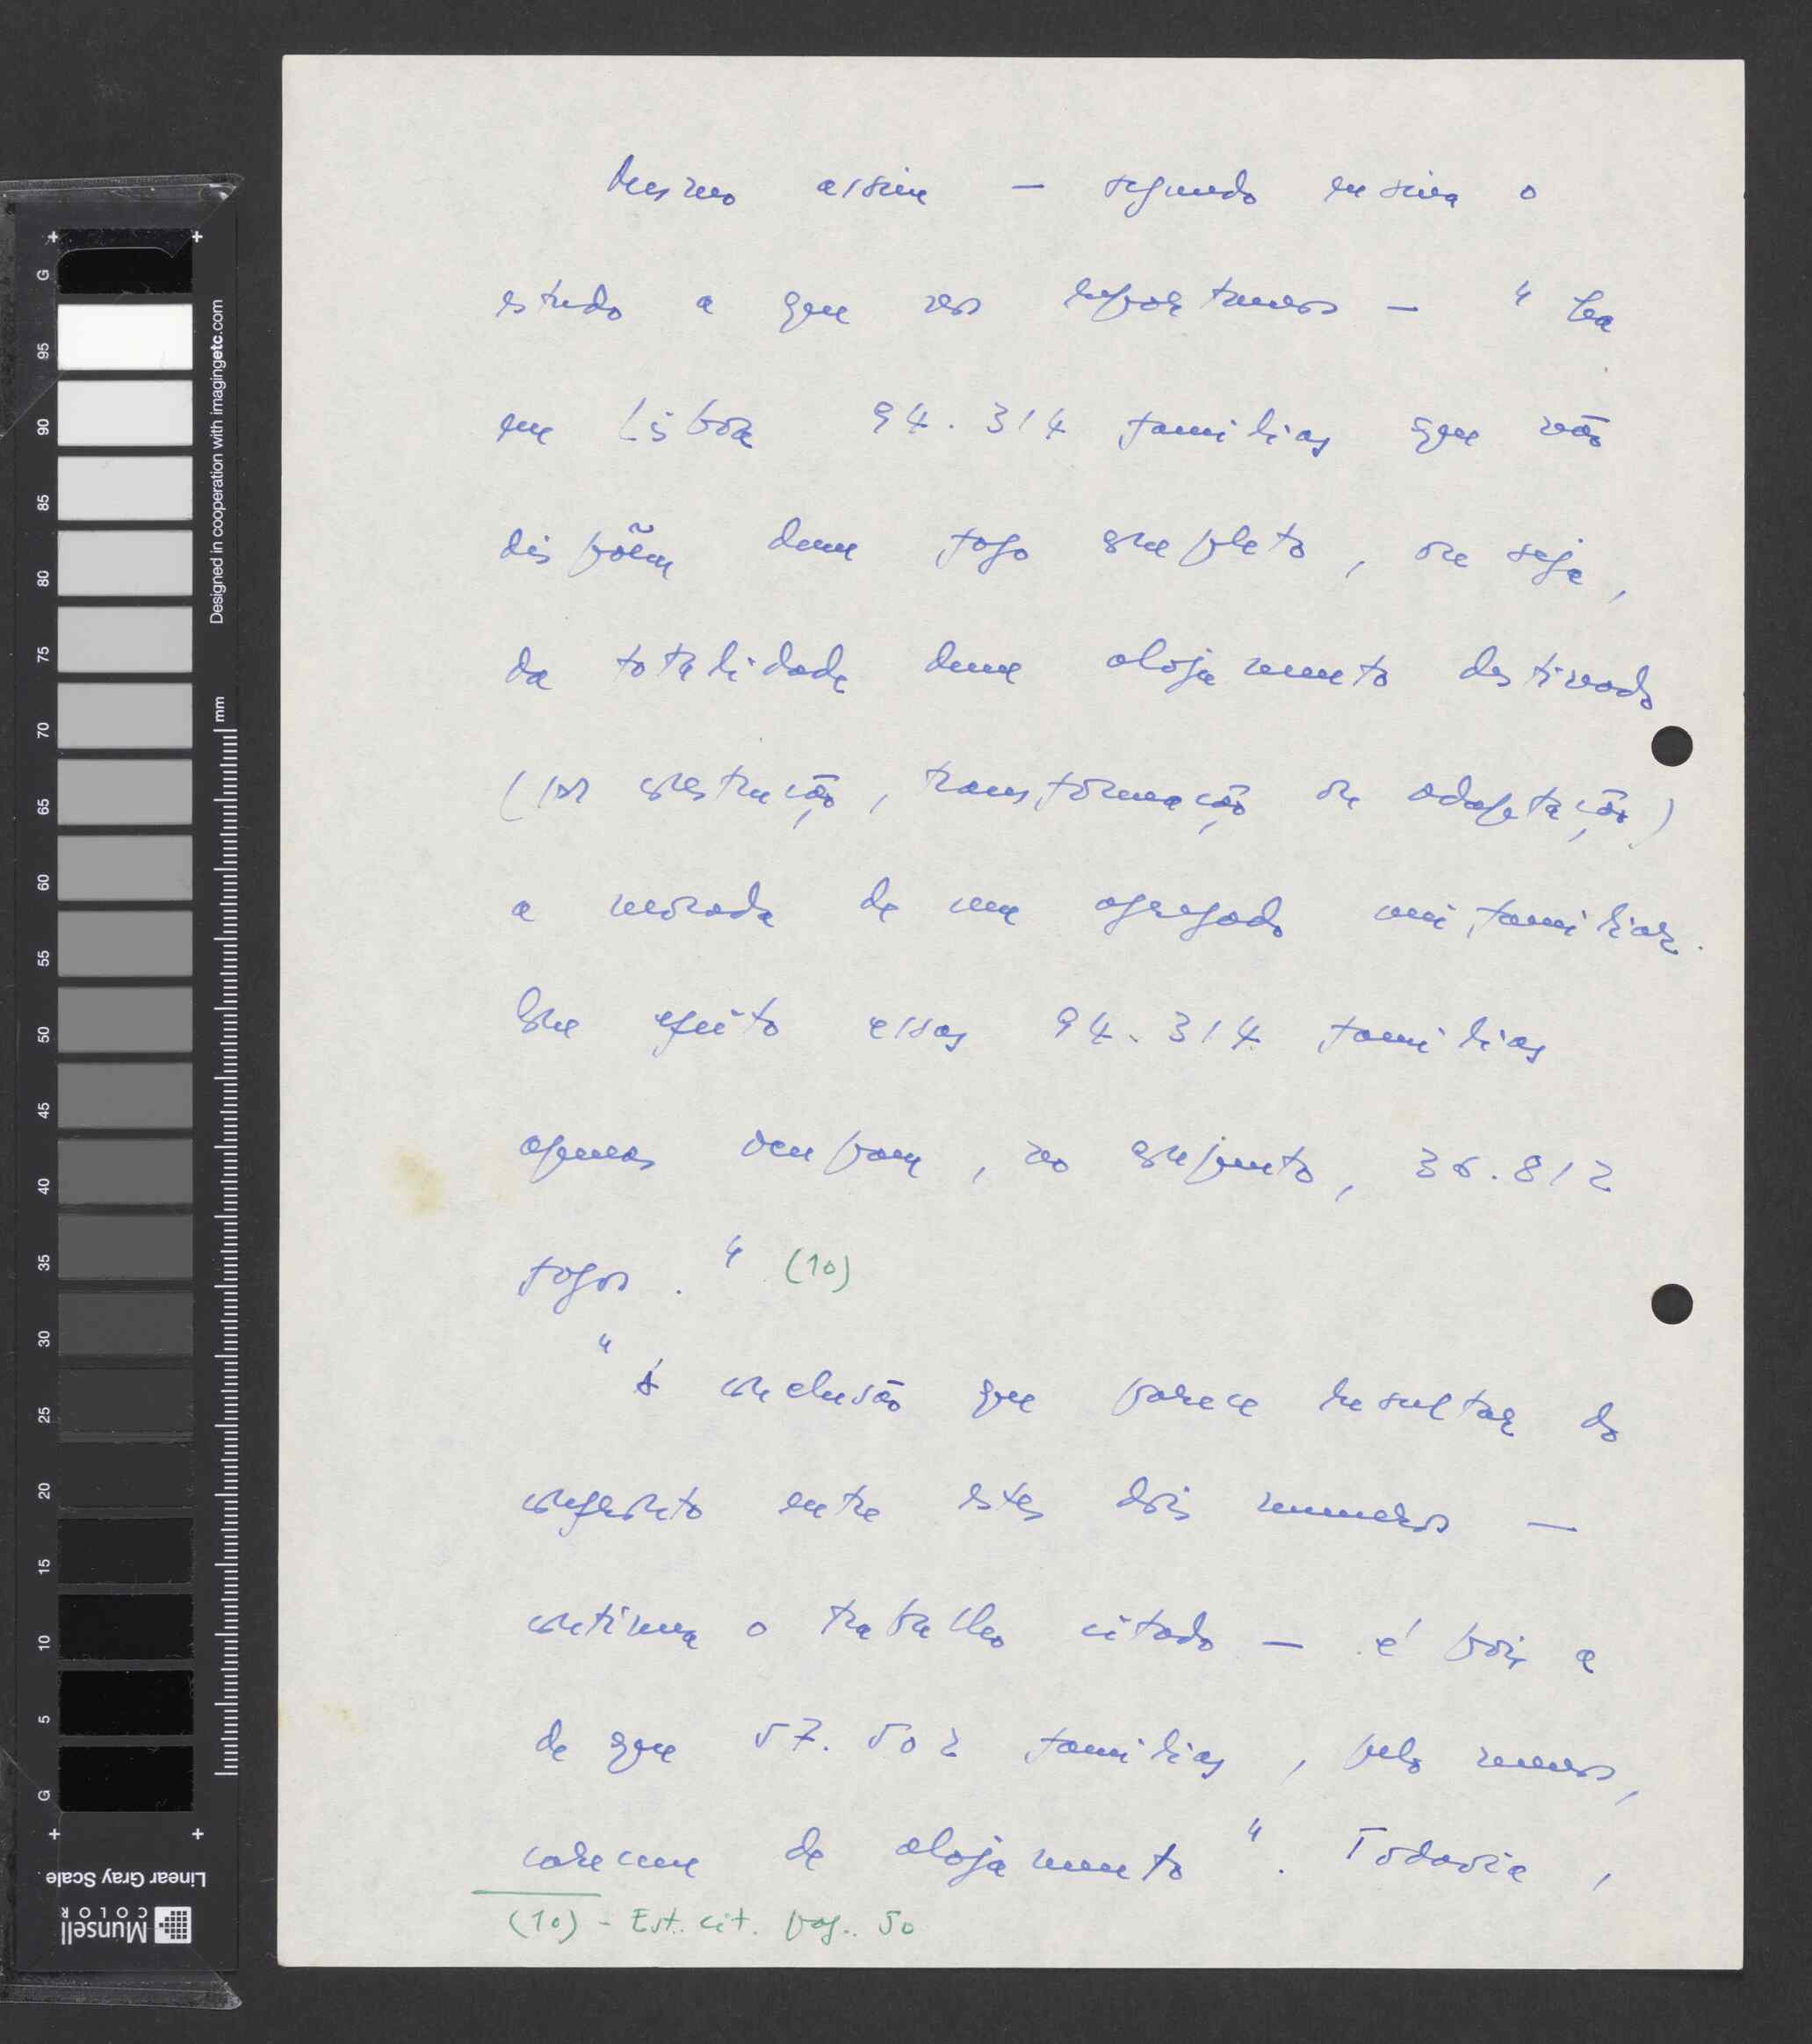 Mesmo assim — segundo ensina o
estudo a que nos reportamos — "ha
em Lisboa 94.314 familias que não
dispõem dum fogo completo, ou seja,
da totalidade dum alojamento destinado
(por construção, transformação ou adaptação)
a morada de um agregado unifamiliar.
Com efeito essas 94.314 familias
apenas ocupam, no conjunto, 36.812
fogos." (10)
"A conclusão que parece resultar do
confronto entre estes dois numeros —
continua o trabalho citado — é pois a
de que 57.502 familias, pelo menos,
carecem de alojamento". Todavia,
(10) - Est. cit. pag. 50
G 95 90 85 80 75 70 65 60 55 50 45 40 35 30 25 20 15 10 5 G
mm
Designed in cooperation with imagingetc.com
Linear Gray Scale
Munsell
COLOR